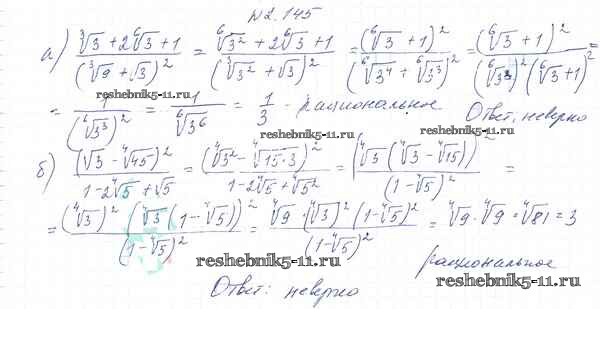 №2.145
а) (∛3 + 2⁶√3 + 1)/(∛9 + √3)² = (⁶√3² + 2⁶√3 + 1)/(∛3² + √3)² = (⁶√3 + 1)²/(⁶√3⁴ + ⁶√3³)² = (⁶√3 + 1)²/((⁶√3³)²(⁶√3 + 1)²) =
= 1/(⁶√3³)² = 1/⁶√3⁶ = 1/3 - рациональное Ответ: неверно
reshebnik5-11.ru. reshebnik5-11.ru. reshebnik5-11.ru.
б) (√3 - ⁴√45)²/(1 - 2⁴√5 + √5) = (⁴√3² - ⁴√15·3)²/(1 - 2⁴√5 + ⁴√5²) = (⁴√3(⁴√3 - ⁴√15))²/(1 - ⁴√5)² =
= (⁴√3)²(⁴√3(1 - ⁴√5))²/(1 - ⁴√5)² = ⁴√9 · (⁴√3)²(1 - ⁴√5)²/(1 - ⁴√5)² = ⁴√9 · ⁴√9 = ⁴√81 = 3
reshebnik5-11.ru. рациональное
reshebnik5-11.ru.
Ответ: неверно